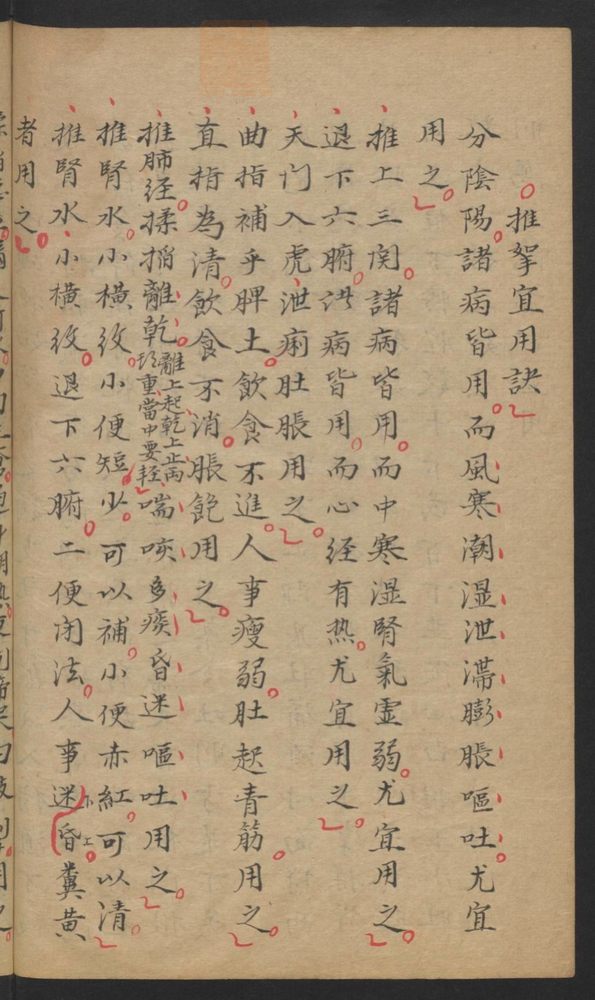 推拏宜用訣
分陰陽諸病皆用而風寒潮濕泄滯膨脹嘔吐尤宜
用之
推上三関諸病皆用而中寒濕腎氣虛弱尤宜用之
退下六腑諸病皆用而心経有热尤宜用之
天门入虎泄痢肚脹用之
曲指補乎脾土飲食不進人事瘦弱肚起青筋用之
直指為清飲食不消脹飽用之
推肺経揉掐離乾離上起乾上止両頭重當中要輕喘咳多痰昏迷嘔吐用之
推腎水小橫紋小便短少可以補小便赤紅可以清
推腎水小橫紋退下六腑二便闭法人事迷昏糞黄
者用之